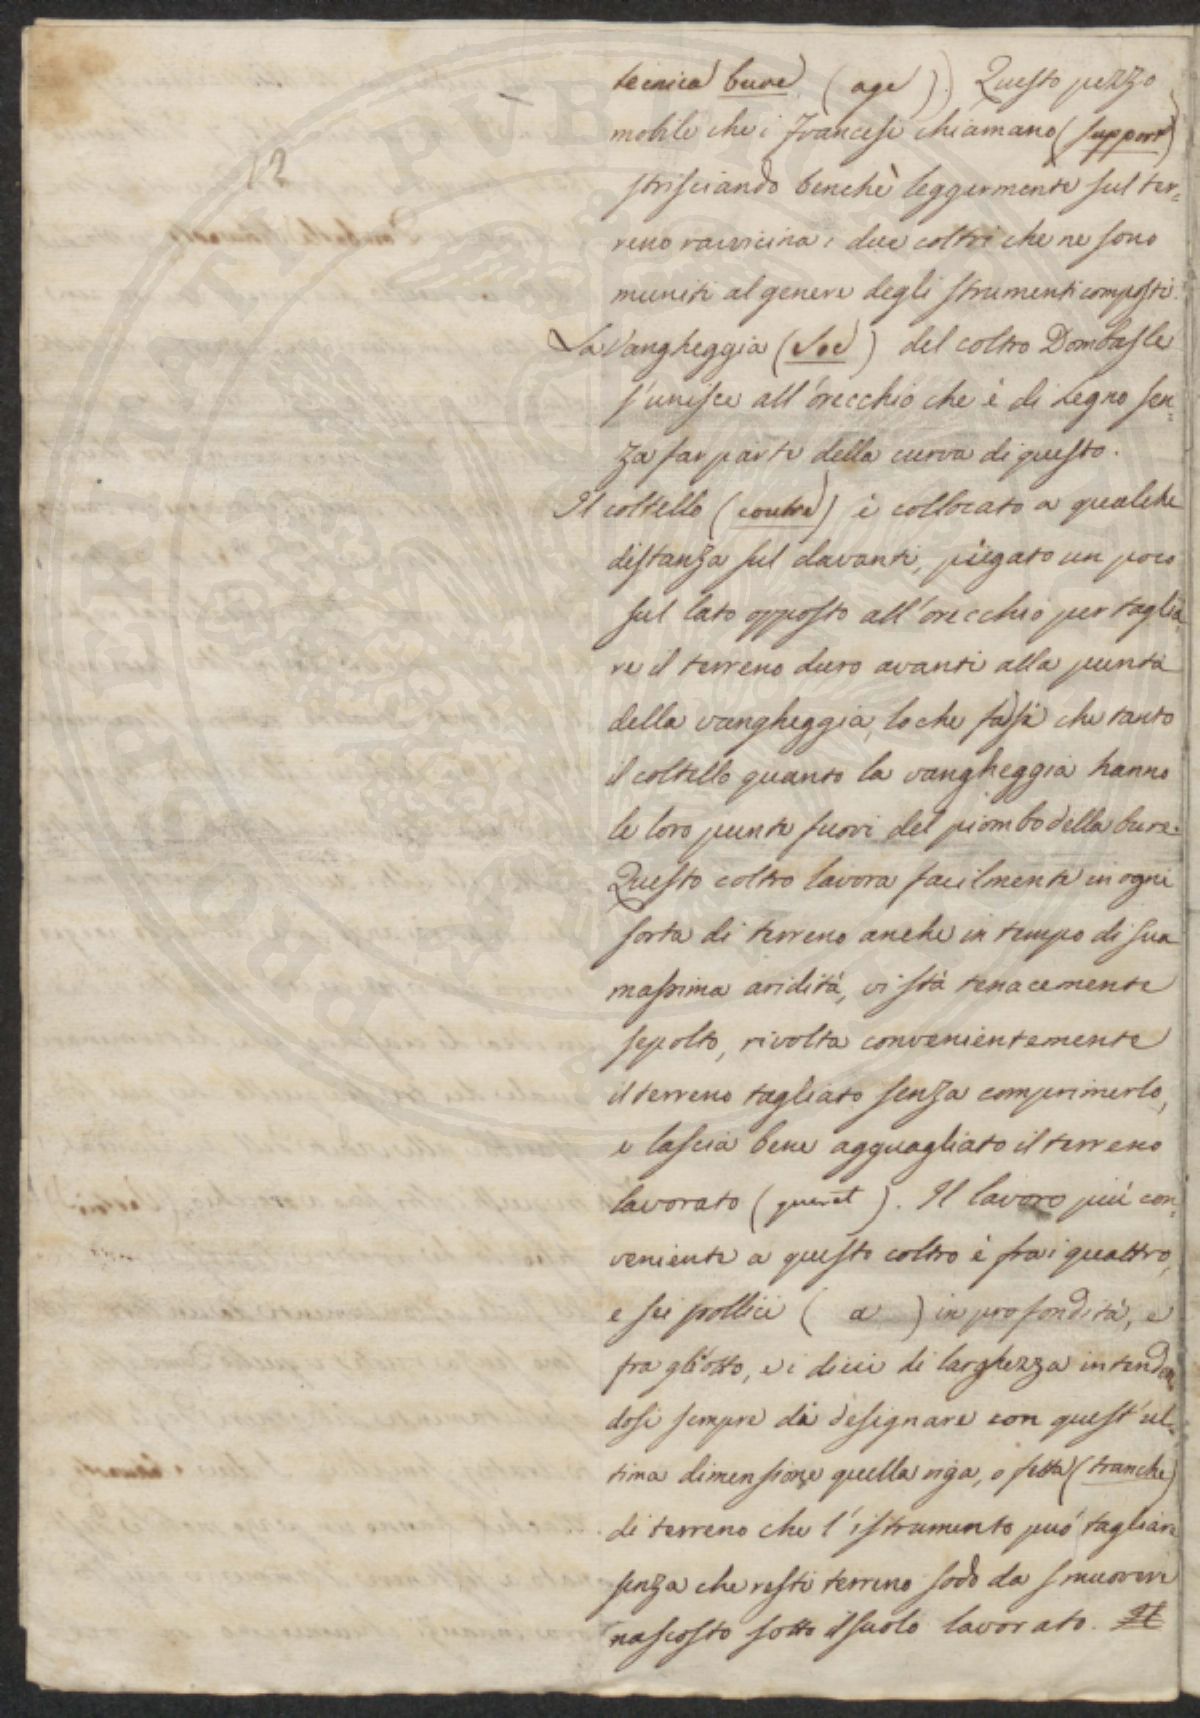 tecnica bure (age)). Questo pezzo
mobile che i Francesi chiamano (support)
strisciando benchè leggermente sul ter=
reno ravvicina i due coltri che ne sono
muniti al genere degli strumenti composti.
La Vangheggia (Soc) del coltro Dombasle
s'unisce all'orecchio che è di legno sen=
za far parte della curva di questo.
Il coltello (coutre) è collocato a qualche
distanza sul davanti, piegato un poco
sul lato opposto all'orecchio per taglia=
re il terreno duro avanti alla punta
della vangheggia, lo che fà sì che tanto
il coltello quanto la vangheggia hanno
le loro punte fuori del piombo della bure.
Questo coltro lavora facilmente in ogni
sorta di terreno anche in tempo di sua
massima aridità, vi stà tenacemente
sepolto, rivolta convenientemente
il terreno tagliato senza comprimerlo,
e lascia bene agguagliato il terreno
lavorato (gueret). Il lavoro più con=
veniente a questo coltro è frai quattro,
e sei pollici ( a ) in profondità, e
fra gli otto, e i dieci di larghezza intenden
dosi sempre di designare con quest'ul=
tima dimensione quella riga, o fetta (tranche)
di terreno che l'istrumento può tagliare
senza che resti terreno sodo da smuovere
nascosto sotto il suolo lavorato. Il
12